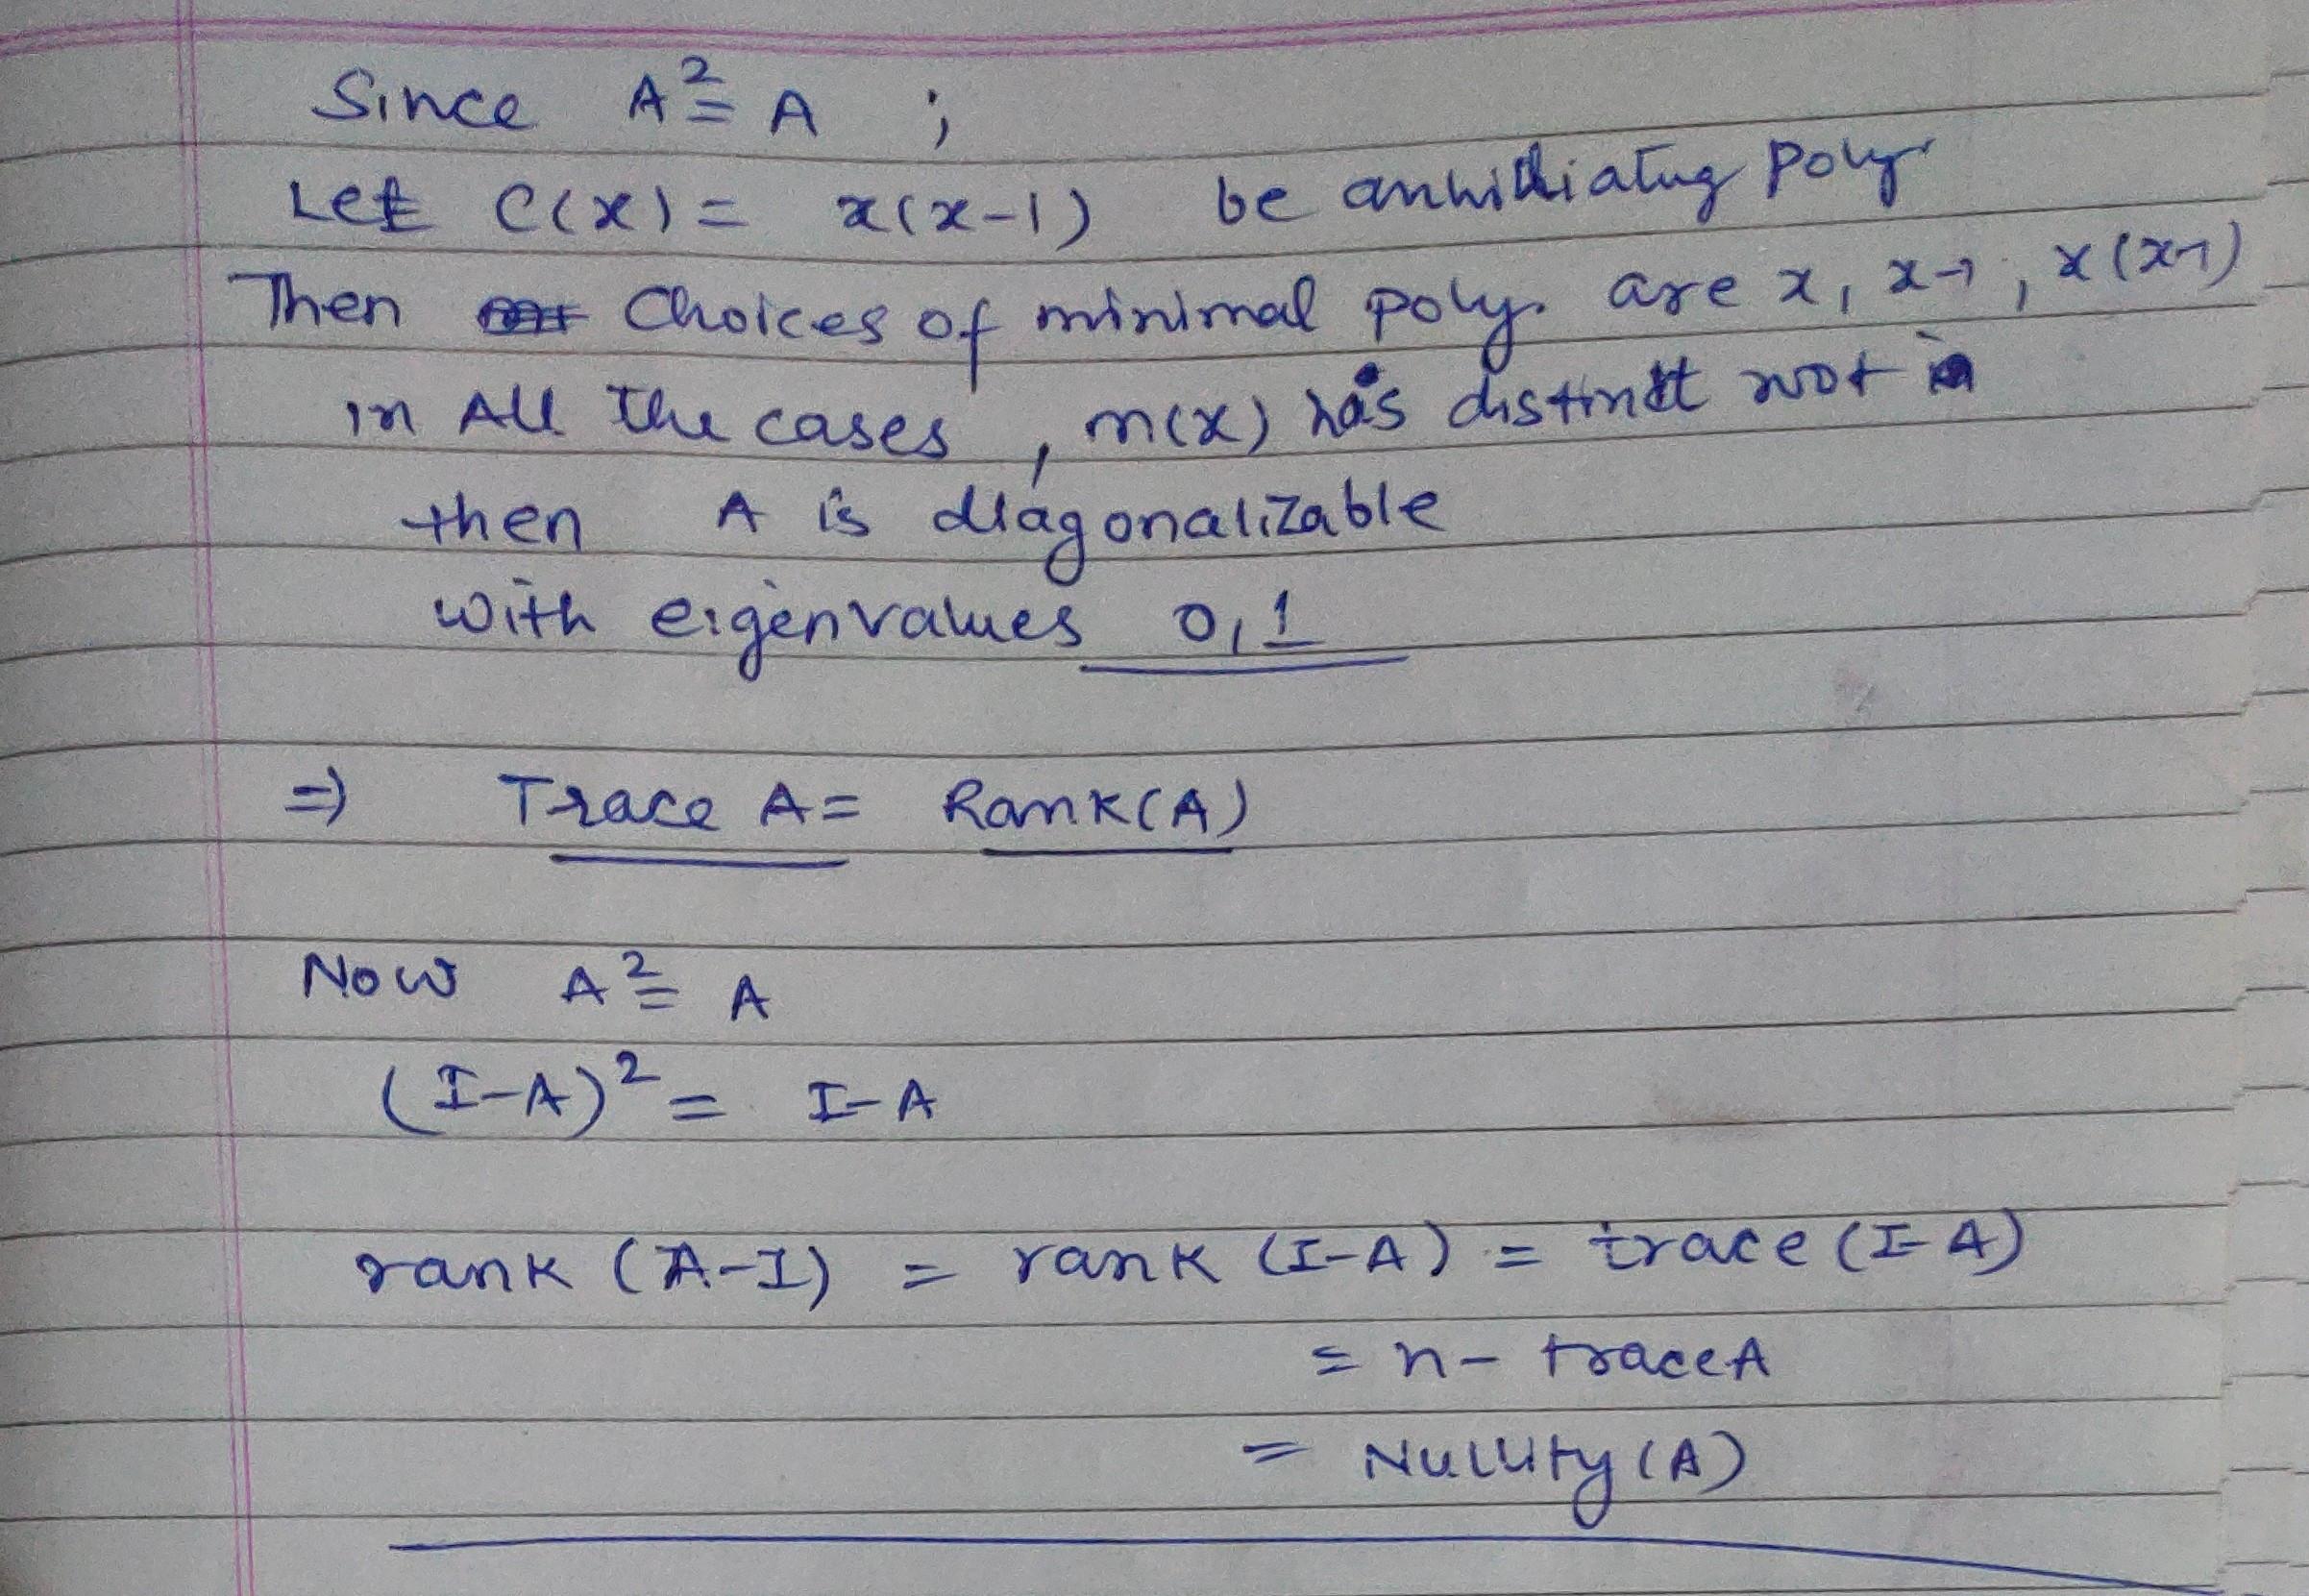 Since A² = A ;
Let C(x) = x(x-1) be annihiliating poly
Then Choices of minimal poly. are x, x-1, x(x-1)
in All the cases, m(x) has distinct root
then A is diagonalizable
with eigenvalues 0,1
⇒ Trace A = Rank(A)
Now A² = A
(I-A)² = I-A
rank (A-I) = rank (I-A) = trace (I-A)
= n - trace A
= Nullity (A)